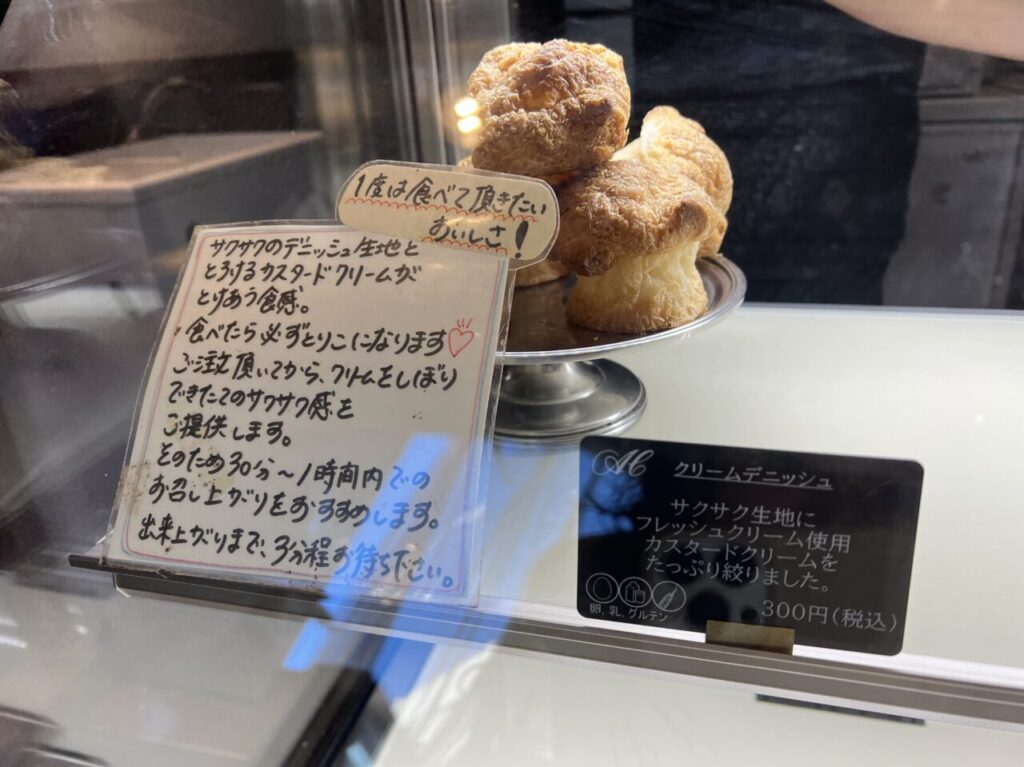 1度は食べて頂きたい
おいしさ!
サクサクのデニッシュ生地と
とろけるカスタードクリームが
とけあう食感。
食べたら必ずとりこになります♡
ご注文頂いてから、クリームをしぼり
できたてのサクサク感を
ご提供します。
そのため30分〜1時間内での
お召し上がりをおすすめします。
出来上がりまで、3分程お待ち下さい。
クリームデニッシュ
サクサク生地に
フレッシュクリーム使用
カスタードクリームを
たっぷり絞りました。
卵, 乳, グルテン
300円(税込)